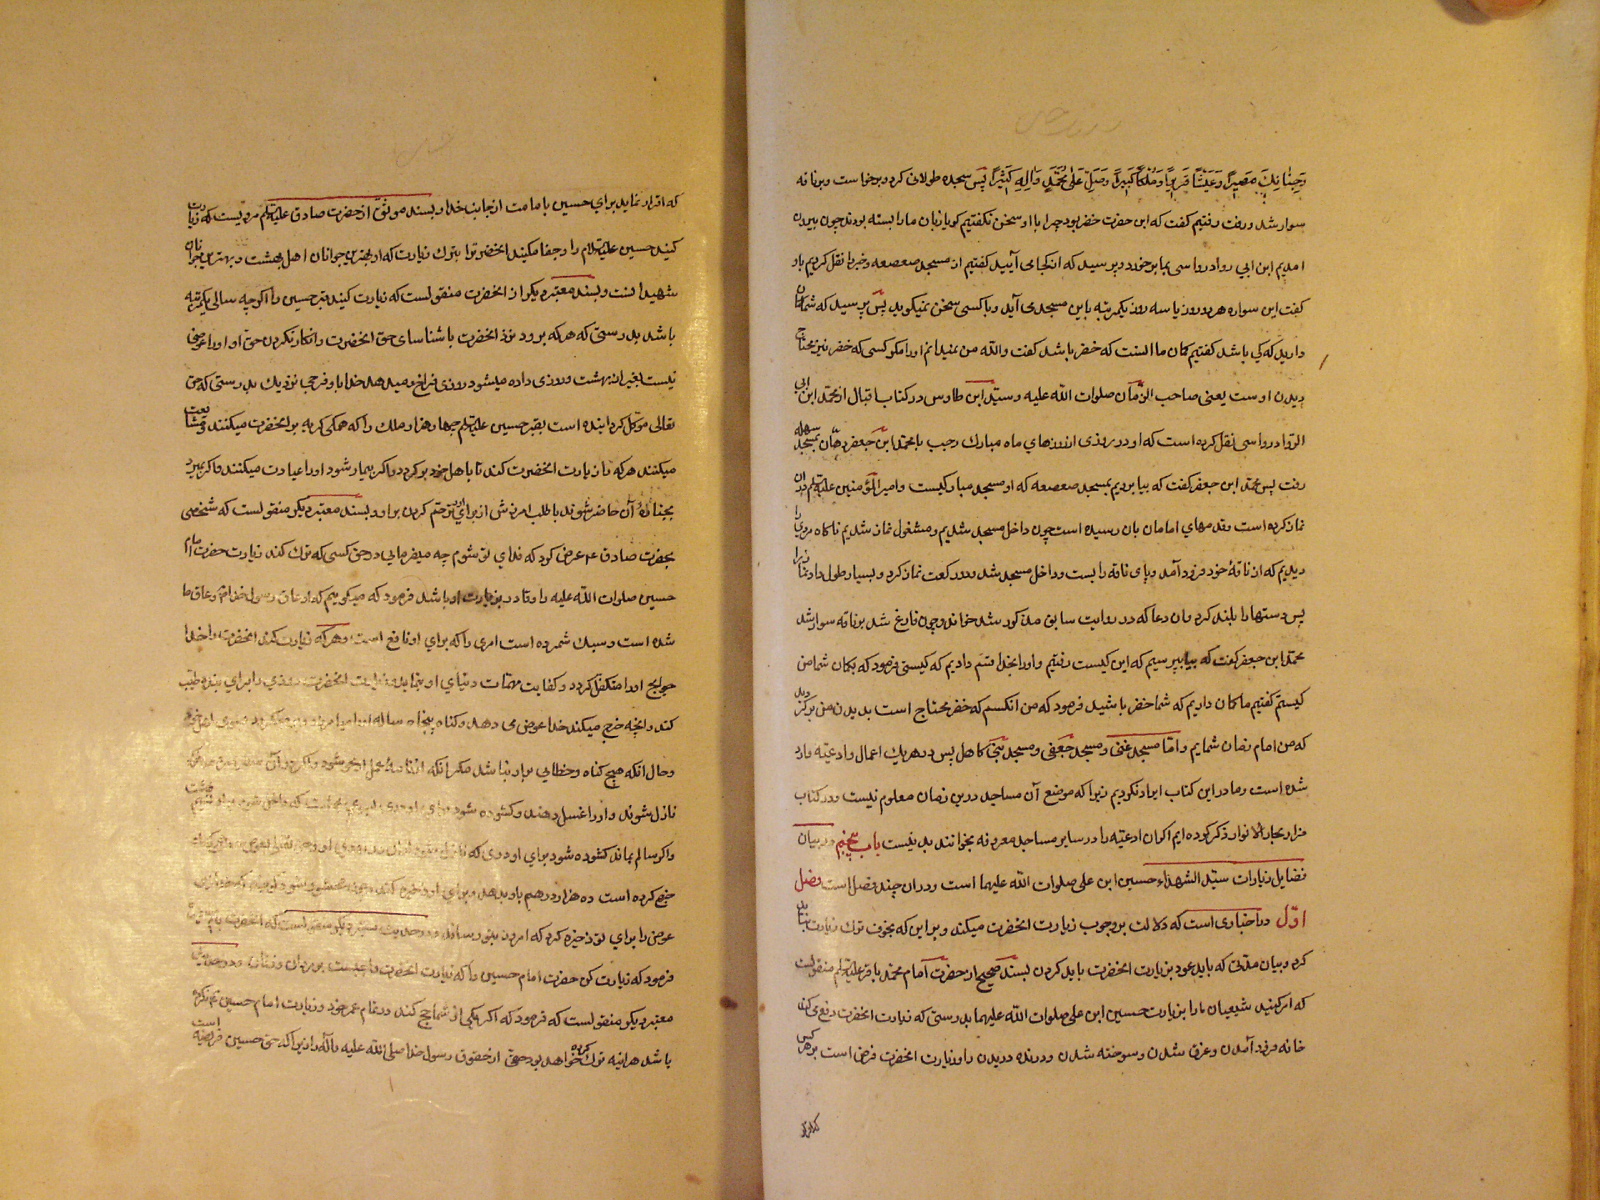 وَجِنَانِكَ مَصِيرًا وَعَيْشًا قَرِيرًا وَمُلْكًا كَبِيرًا وَصَلِّ عَلى مُحَمَّدٍ وَآلِهِ كَثِيرًا پس سجده طولانی کرد و برخواست و بر ناقه
سوار شد و رفت و رفتیم گفت که این حضرت خضر بود چرا با او سخن نگفتیم گویا زبان ما را بسته بودند چون بیرون
امدیم ابن ابی رواد رواسی بما بر خورد و پرسید که از کجا می آیید گفتیم از مسجد صعصعه و خبر را نقل کردیم باو
گفت این سواره هر دو روز یا سه روز یکمرتبه باین مسجد می آید و با کسی سخن نمیگوید پس پرسید که شما گمان
دارید که کی باشد گفتیم گمان ما اینست که خضر باشد گفت والله من نمیدانم او را مگر کسی که خضر نیز محتاج
دیدن اوست یعنی صاحب الزمان صلوات الله علیه و سید ابن طاوس در کتاب اقبال از محمد ابن ابی
الرواد رواسی نقل کرده است که او در روزی از روزهای ماه مبارک رجب با محمد ابن جعفر دهان بمسجد سهله
رفت پس محمد ابن جعفر گفت که بیا برویم بمسجد صعصعه که او مسجد مبارکیست و امیر المؤمنین علیه السلام در ان
نماز کرده است و قدمهای امامان بان رسیده است چون داخل مسجد شدیم و مشغول نماز شدیم ناگاه مردی را
دیدیم که از ناقهٔ خود فرود آمد و پای ناقه را بست و داخل مسجد شد و دو رکعت نماز کرد و بسیار طول داد نماز را
پس دستها را بلند کرد و ان دعا که در روایت سابق مذکور شد خواند و چون فارغ شد بر ناقه سوار شد
محمد ابن جعفر گفت که بیا بپرسیم که این کیست رفتیم و او را بخدا قسم دادیم که کیستی فرمود که بگمان شما من
کیستم گفتیم ما گمان داریم که شما خضر باشید فرمود که من انکسم که خضر محتاج است بدیدن من برگردید
که من امام زمان شمایم و اما مسجد غنی و مسجد جعفی و مسجد بنی کاهل پس در هر یک اعمال و ادعیه وارد
شده است و ما در این کتاب ایراد نکردیم زیرا که موضع آن مساجد درین زمان معلوم نیست و در کتاب
مزار بحار الانوار ذکر کرده ایم اگر ان ادعیه را در سایر مساجد معروفه بخوانند بد نیست باب پنجم در بیان
فضایل زیارات سید الشهداء حسین ابن علی صلوات الله علیهما است و دران چند فصل است فصل
اول در اخباری است که دلالت بر وجوب زیارت انحضرت میکند و بر این که بخوف ترک زیارت نباید
کرد و بیان مدتی که باید عود بزیارت انحضرت باید کردن بسند صحیح از حضرت امام محمد باقر علیه السلام منقولست
که امر کنید شیعیان ما را بزیارت حسین ابن علی صلوات الله علیهما بدرستی که زیارت انحضرت دفع می کند
خانه فرود آمدن و غرق شدن و سوخته شدن و درنده دریدن را و زیارت انحضرت فرض است بر هر کس
که اقرار نماید برای حسین بامامت از جانب خدا و بسند موثق از حضرت صادق علیه السلام مرویست که زیارت
کنید حسین علیه السلام را و جفا مکنید انحضرت را بترک زیارت که او بهترین جوانان اهل بهشت و بهترین جوانان
شهیدانست و بسند معتبر دیگر از انحضرت منقولست که زیارت کنید قبر حسین را اگرچه سالی یکمرتبه
باشد بدرستی که هر که برود نزد انحضرت با شناسای حق انحضرت و انکار نکردن حق او او را عوضی
نیست بغیر از بهشت و روزی داده میشود روزی فراخ و میدهد خدا باو فرجی نزدیک بدرستی که حق
تعالی موکل گردانیده است بقبر حسین علیه السلام چهار هزار ملک را که همگی گریه بر انحضرت میکنند و مشایعت
میکنند هر که را زیارت انحضرت کند تا باهل خود برگردد و اگر بیمار شود او را عیادت میکنند و اگر بمیرد
بجنازهٔ آن حاضر شوند با طلب امرزش از برای او و ترحم کردن بر او و بسند معتبر دیگر منقولست که شخصی
بحضرت صادق ع عرض کرد که فدای تو شوم چه میفرمایی در حق کسی که ترک کند زیارت حضرت امام
حسین صلوات الله علیه را و قادر بزیارت او باشد فرمود که میگویم که او عاق رسول خدا و عاق ما
شده است و سبک شمرده است امری را که برای او نافع است و هر که زیارت کند انحضرت را خدا
حوایج او را متکفل گردد و کفایت مهمات دنیای او بنماید و زیارت انحضرت روزی را برای بنده جلب
کند و انچه خرج میکند خدا عوض می دهد و گناه پنجاه ساله او را میامرزد و برمیگردد بسوی اهل خود
و حال آنکه هیچ گناه و خطایی بر او نباشد مگر آنکه از نامهٔ عمل او محو شود و اگر در آن سفر بمیرد ملائکه
نازل شوند و او را غسل دهند و گشوده شود برای او دری بسوی بهشت که داخل شود بر او نسیم بهشت
و اگر سالم بماند گشوده شود برای او دری که نازل میشود از ان در روزی او و حق تعالی بعوض هر درهمی که
خرج کرده است ده هزار درهم باو بدهد و برای او ذخیره کند و چون محشور شود گویند که خدا این
عوض را برای تو ذخیره کرد که امروز بتو رساند و در حدیث معتبر دیگر منقولست که انحضرت
فرمود که زیارت کن حضرت امام حسین را که زیارت انحضرت واجبست بر مردان و زنان و در حدیث
معتبر دیگر منقولست که فرمود که اگر یکی از شما حج کند در تمام عمر خود و زیارت امام حسین نکرده
باشد هراینه ترک کرده خواهد بود حقی از حقوق رسول خدا صلی الله علیه و آله را زیرا که حق حسین فریضه است